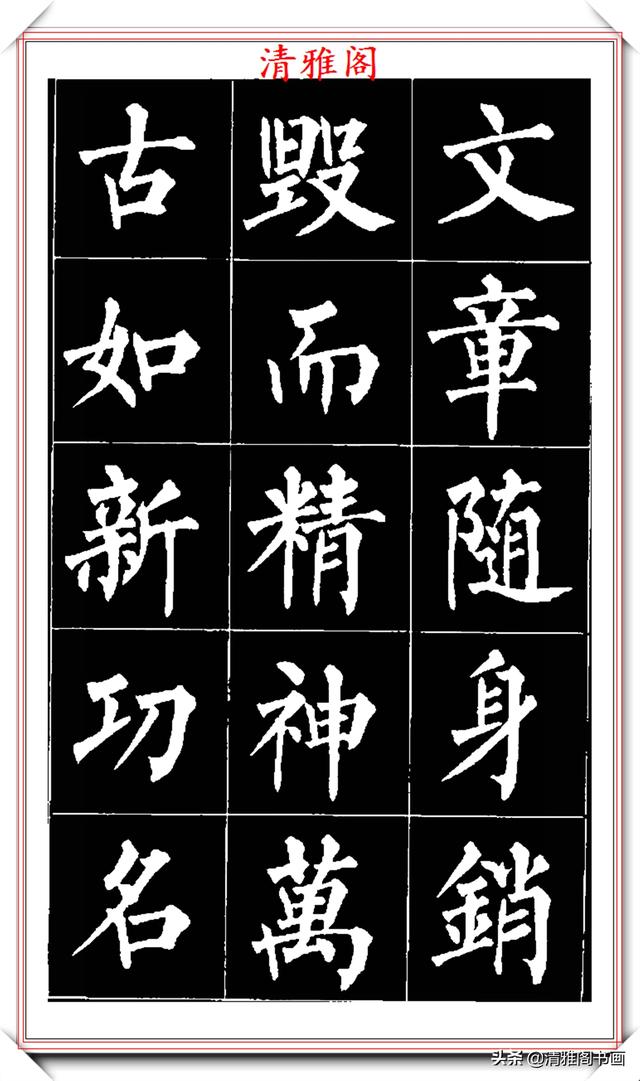 清雅阁
文章随身銷
毀而精神萬
古如新功名
头条 @清雅阁书画